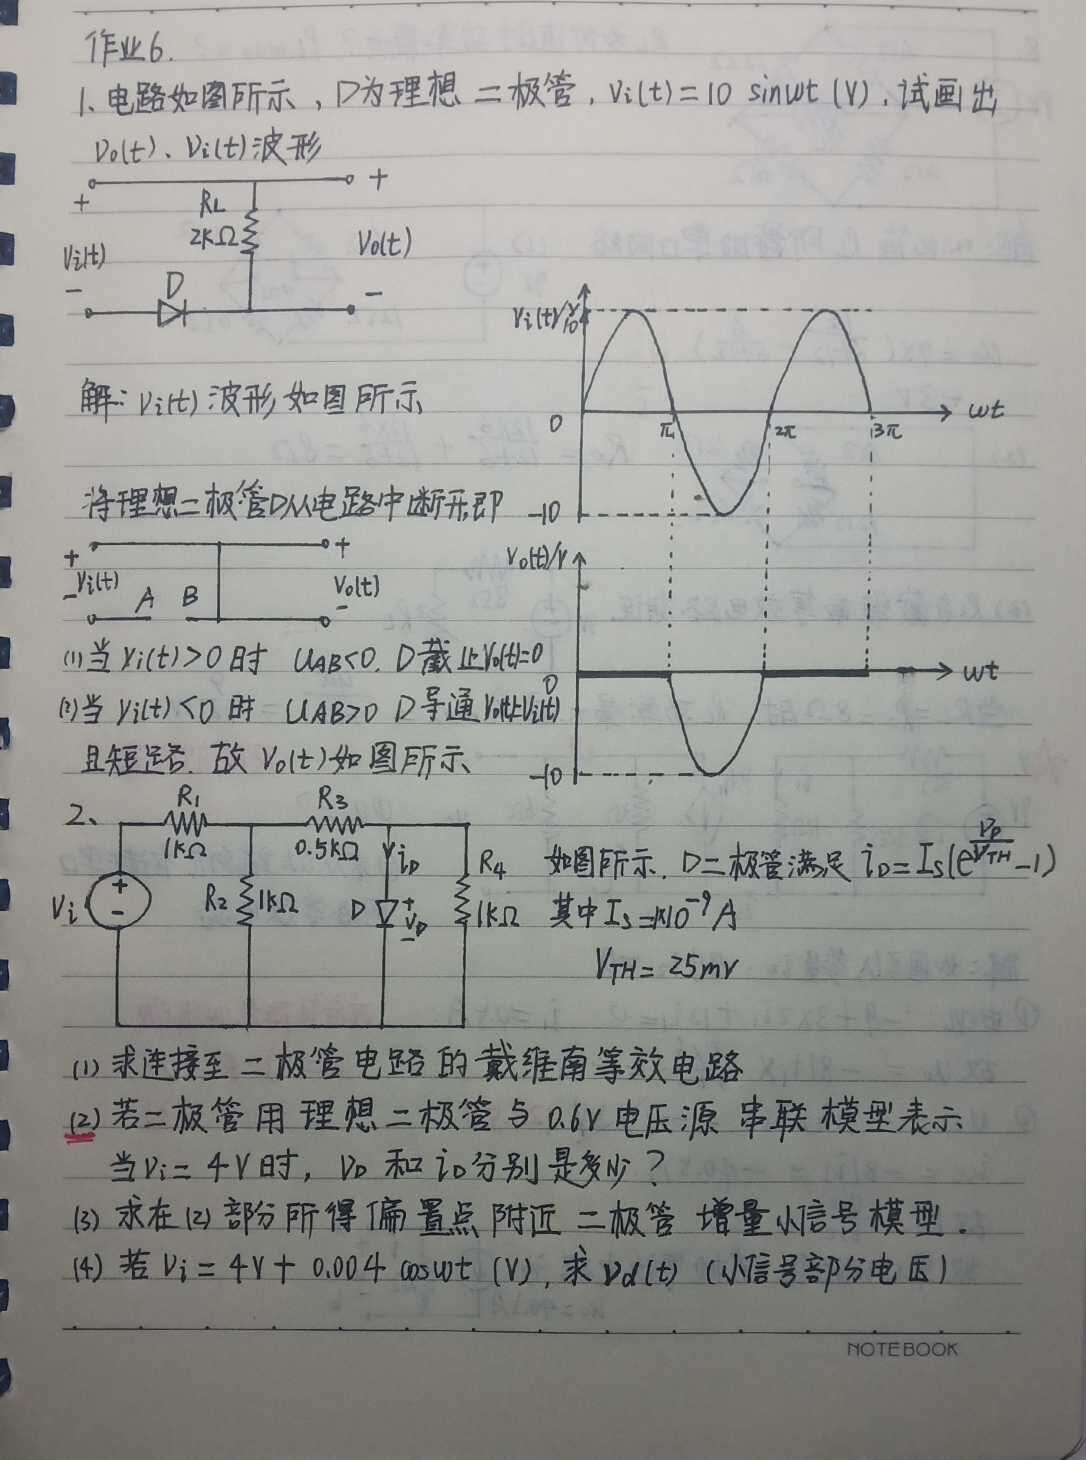 作业6.
1、电路如图所示，D为理想二极管，Vi(t)=10 sinωt (V)，试画出
Vo(t)、Vi(t)波形
+
RL
2kΩ
+
Vi(t)
Vo(t)
-
D
-
Vi(t)/V
10
0
π
2π
3π
ωt
-10
解：Vi(t)波形如图所示
将理想二极管D从电路中断开即
+
+
Vi(t)
Vo(t)
-
A
B
-
Vo(t)/V
0
ωt
-10
(1)当Vi(t)>0时 UAB<0. D截止Vo(t)=0
(2)当Vi(t)<0时 UAB>0 D导通Vo(t)=Vi(t)
且短路. 故Vo(t)如图所示
2、
R1
1kΩ
R3
0.5kΩ
iD
R4
1kΩ
R2
1kΩ
D
+
VD
-
Vi
+
-
如图所示. D二极管满足 iD=Is(e^(VD/VTH)-1)
其中Is=1×10^-9 A
VTH=25mV
(1) 求连接至二极管电路的戴维南等效电路
(2) 若二极管用理想二极管与0.6V电压源串联模型表示
当Vi=4V时，VD和iD分别是多少？
(3) 求在(2)部分所得偏置点附近二极管增量小信号模型.
(4) 若Vi=4V+0.004 cosωt (V)，求vd(t) (小信号部分电压)
NOTEBOOK